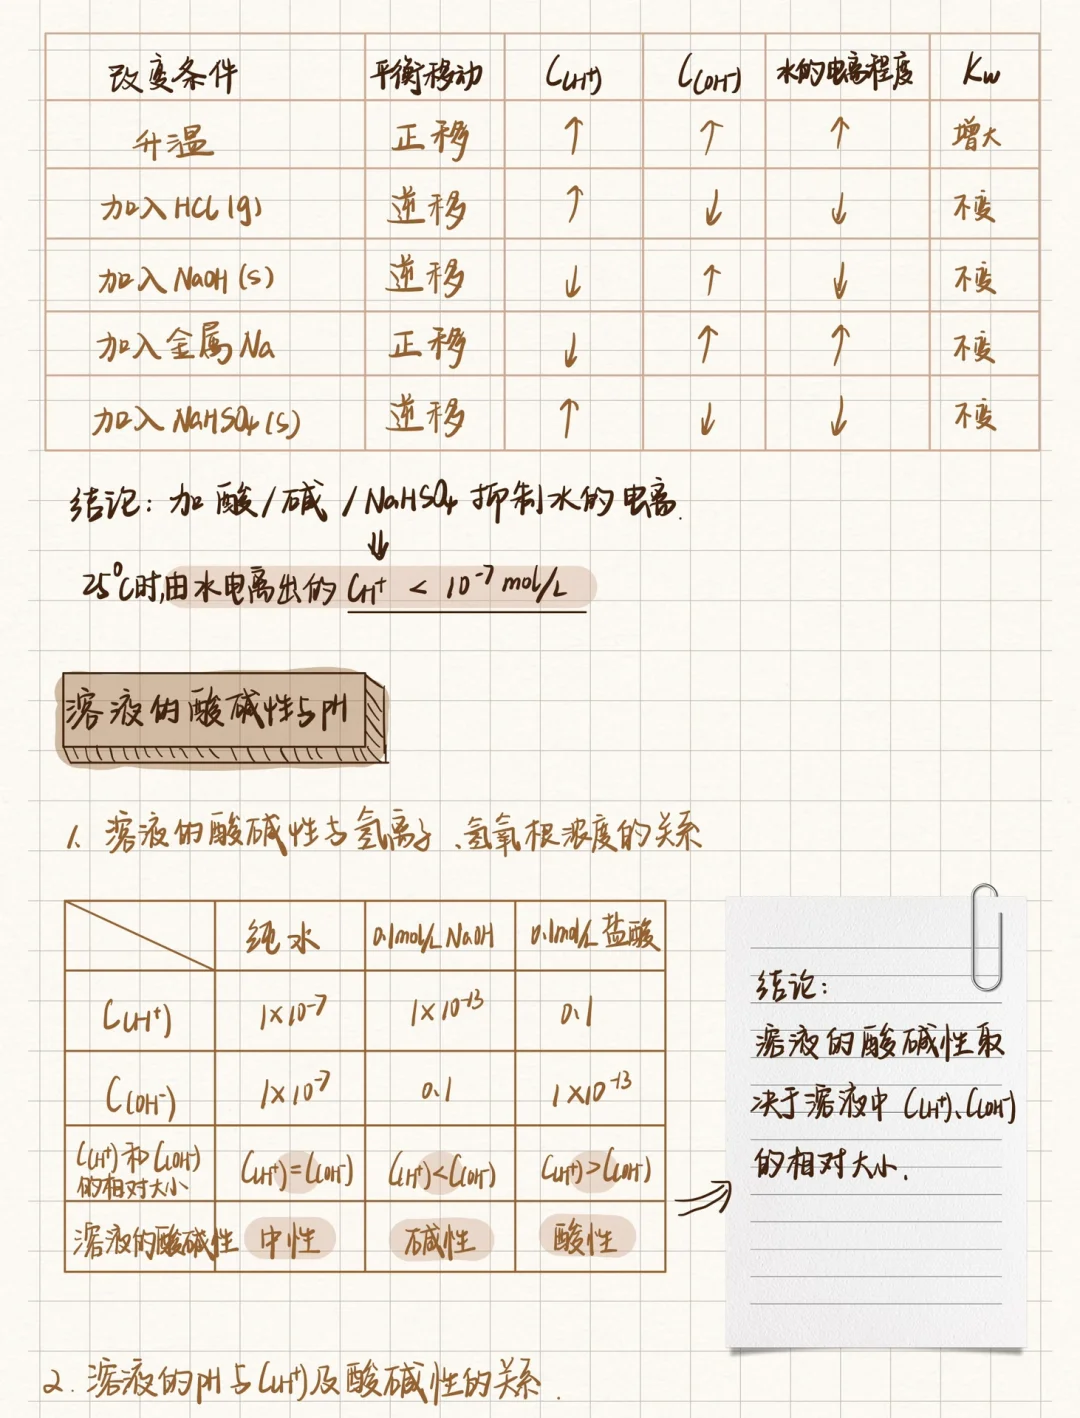 改变条件 平衡移动 C(H⁺) C(OH⁻) 水的电离程度 Kw
升温 正移 ↑ ↑ ↑ 增大
加入HCl(g) 逆移 ↑ ↓ ↓ 不变
加入NaOH(s) 逆移 ↓ ↑ ↓ 不变
加入金属Na 正移 ↓ ↑ ↑ 不变
加入NaHSO₄(s) 逆移 ↑ ↓ ↓ 不变
结论：加酸/碱/NaHSO₄抑制水的电离.
↓
25°C时,由水电离出的CH⁺ < 10⁻⁷mol/L
溶液的酸碱性与pH
1. 溶液的酸碱性与氢离子、氢氧根浓度的关系
纯水 0.1mol/L NaOH 0.1mol/L 盐酸
C(H⁺) 1×10⁻⁷ 1×10⁻¹³ 0.1
C(OH⁻) 1×10⁻⁷ 0.1 1×10⁻¹³
C(H⁺)和C(OH⁻)
的相对大小 C(H⁺)=C(OH⁻) C(H⁺)<C(OH⁻) C(H⁺)>C(OH⁻)
溶液的酸碱性 中性 碱性 酸性
结论：
溶液的酸碱性取
决于溶液中C(H⁺)、C(OH⁻)
的相对大小.
2. 溶液的pH与C(H⁺)及酸碱性的关系.